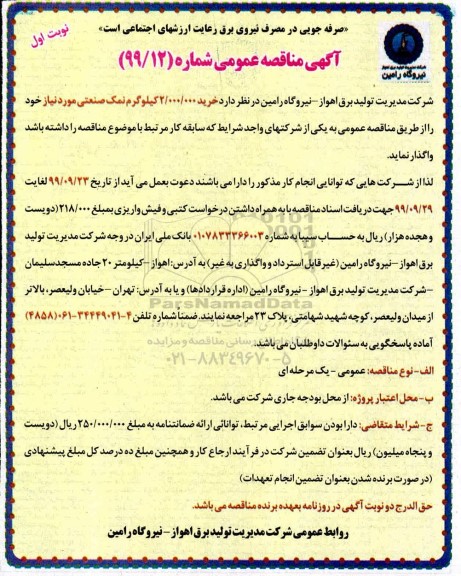 «صرفه جویی در مصرف نیروی برق رعایت ارزشهای اجتماعی است»
نوبت اول
آگهی مناقصه عمومی شماره (۹۹/۱۲)
شرکت مدیریت تولید برق اهواز
نیروگاه رامین
شرکت مدیریت تولید برق اهواز – نیروگاه رامین در نظر دارد خرید ۲/۰۰۰/۰۰۰ کیلوگرم نمک صنعتی مورد نیاز خود
را از طریق مناقصه عمومی به یکی از شرکتهای واجد شرایط که سابقه کار مرتبط با موضوع مناقصه را داشته باشد
واگذار نماید.
لذا از شرکت هایی که توانایی انجام کار مذکور را دارا می باشند دعوت بعمل می آید از تاریخ ۹۹/۰۹/۲۳ لغایت
۹۹/۰۹/۲۹ جهت دریافت اسناد مناقصه با به همراه داشتن درخواست کتبی و فیش واریزی بمبلغ ۲۱۸/۰۰۰ (دویست
و هجده هزار) ریال به حساب سیبا به شماره ۰۱۰۷۸۳۳۳۶۶۰۰۳ بانک ملی ایران در وجه شرکت مدیریت تولید
برق اهواز – نیروگاه رامین (غیر قابل استرداد و واگذاری به غیر) به آدرس: اهواز – کیلومتر ۲۰ جاده مسجدسلیمان
– شرکت مدیریت تولید برق اهواز – نیروگاه رامین (اداره قراردادها) و یا به آدرس: تهران – خیابان ولیعصر، بالاتر
از میدان ولیعصر، کوچه شهید شهامتی، پلاک ۲۳ مراجعه نمایند. ضمنا شماره تلفن ۴-۳۴۴۴۹۰۴۱-۰۶۱ (۴۸۵۸)
آماده پاسخگویی به سئوالات داوطلبان می باشد.
ParsNamadData
۰۲۱-۸۸۳۴۹۶۷۰-۵
الف- نوع مناقصه: عمومی - یک مرحله ای
ب- محل اعتبار پروژه: از محل بودجه جاری شرکت می باشد.
ج- شرایط متقاضی: دارا بودن سوابق اجرایی مرتبط، توانائی ارائه ضمانتنامه به مبلغ ۲۵۰/۰۰۰/۰۰۰ ریال (دویست
و پنجاه میلیون) ریال بعنوان تضمین شرکت در فرآیند ارجاع کار و همچنین مبلغ ده درصد کل مبلغ پیشنهادی
(در صورت برنده شدن بعنوان تضمین انجام تعهدات)
حق الدرج دو نوبت آگهی در روزنامه بعهده برنده مناقصه می باشد.
روابط عمومی شرکت مدیریت تولید برق اهواز – نیروگاه رامین